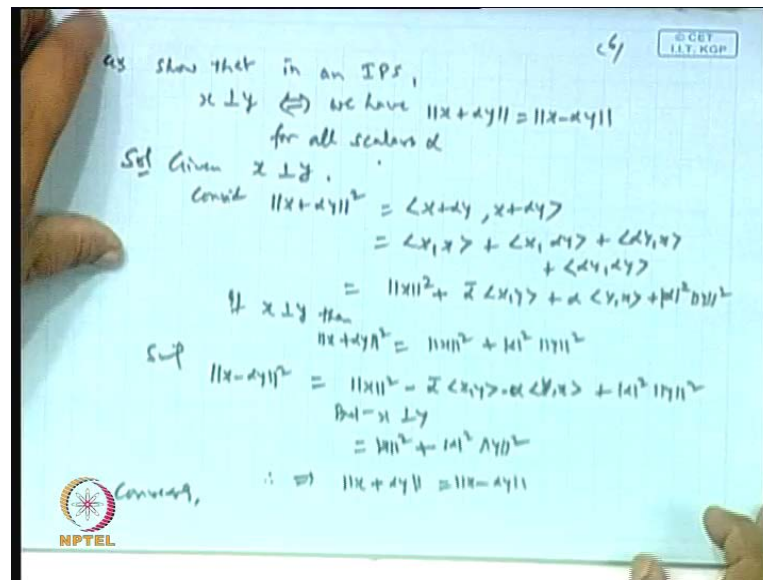 <6/
© CET
I.I.T. KGP
Q3 Show that in an IPS,
x ⊥ y ⇔ we have ||x + αy|| = ||x - αy||
for all scalars α
Sol Given x ⊥ y.
Consid ||x + αy||² = <x+αy, x+αy>
= <x, x> + <x, αy> + <αy, x>
+ <αy, αy>
= ||x||² + ᾱ <x, y> + α <y, x> + |α|² ||y||²
If x ⊥ y then
||x + αy||² = ||x||² + |α|² ||y||²
||x - αy||² = ||x||² - ᾱ <x, y> - α <y, x> + |α|² ||y||²
But x ⊥ y
= ||x||² + |α|² ||y||²
∴ ⇒ ||x + αy|| = ||x - αy||
Convers,
NPTEL